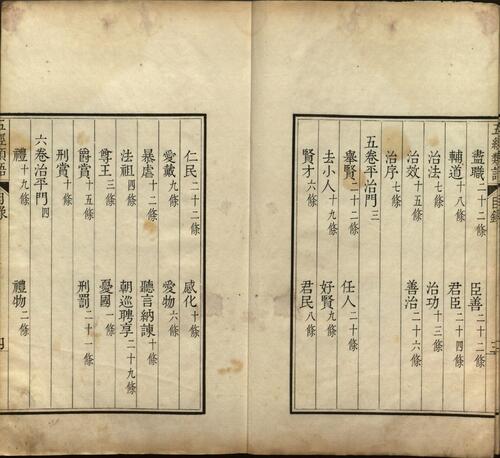 盡職二十二條 臣善二十二條
輔道十八條 君臣二十四條
治法七條 治功十三條
治效十五條 善治二十六條
治序七條
五卷平治門三
舉賢二十二條 任人二十條
去小人十九條 好賢九條
賢才六條 君民八條
仁民二十二條 感化十條
愛戴九條 愛物六條
暴虐十二條 聽言納諫十條
法祖四條 朝巡聘享二十九條
尊王三條 憂國一條
爵賞十五條 刑罰二十一條
刑賞十條
六卷治平門四
禮十九條 禮物二條
五經類語 目錄 四